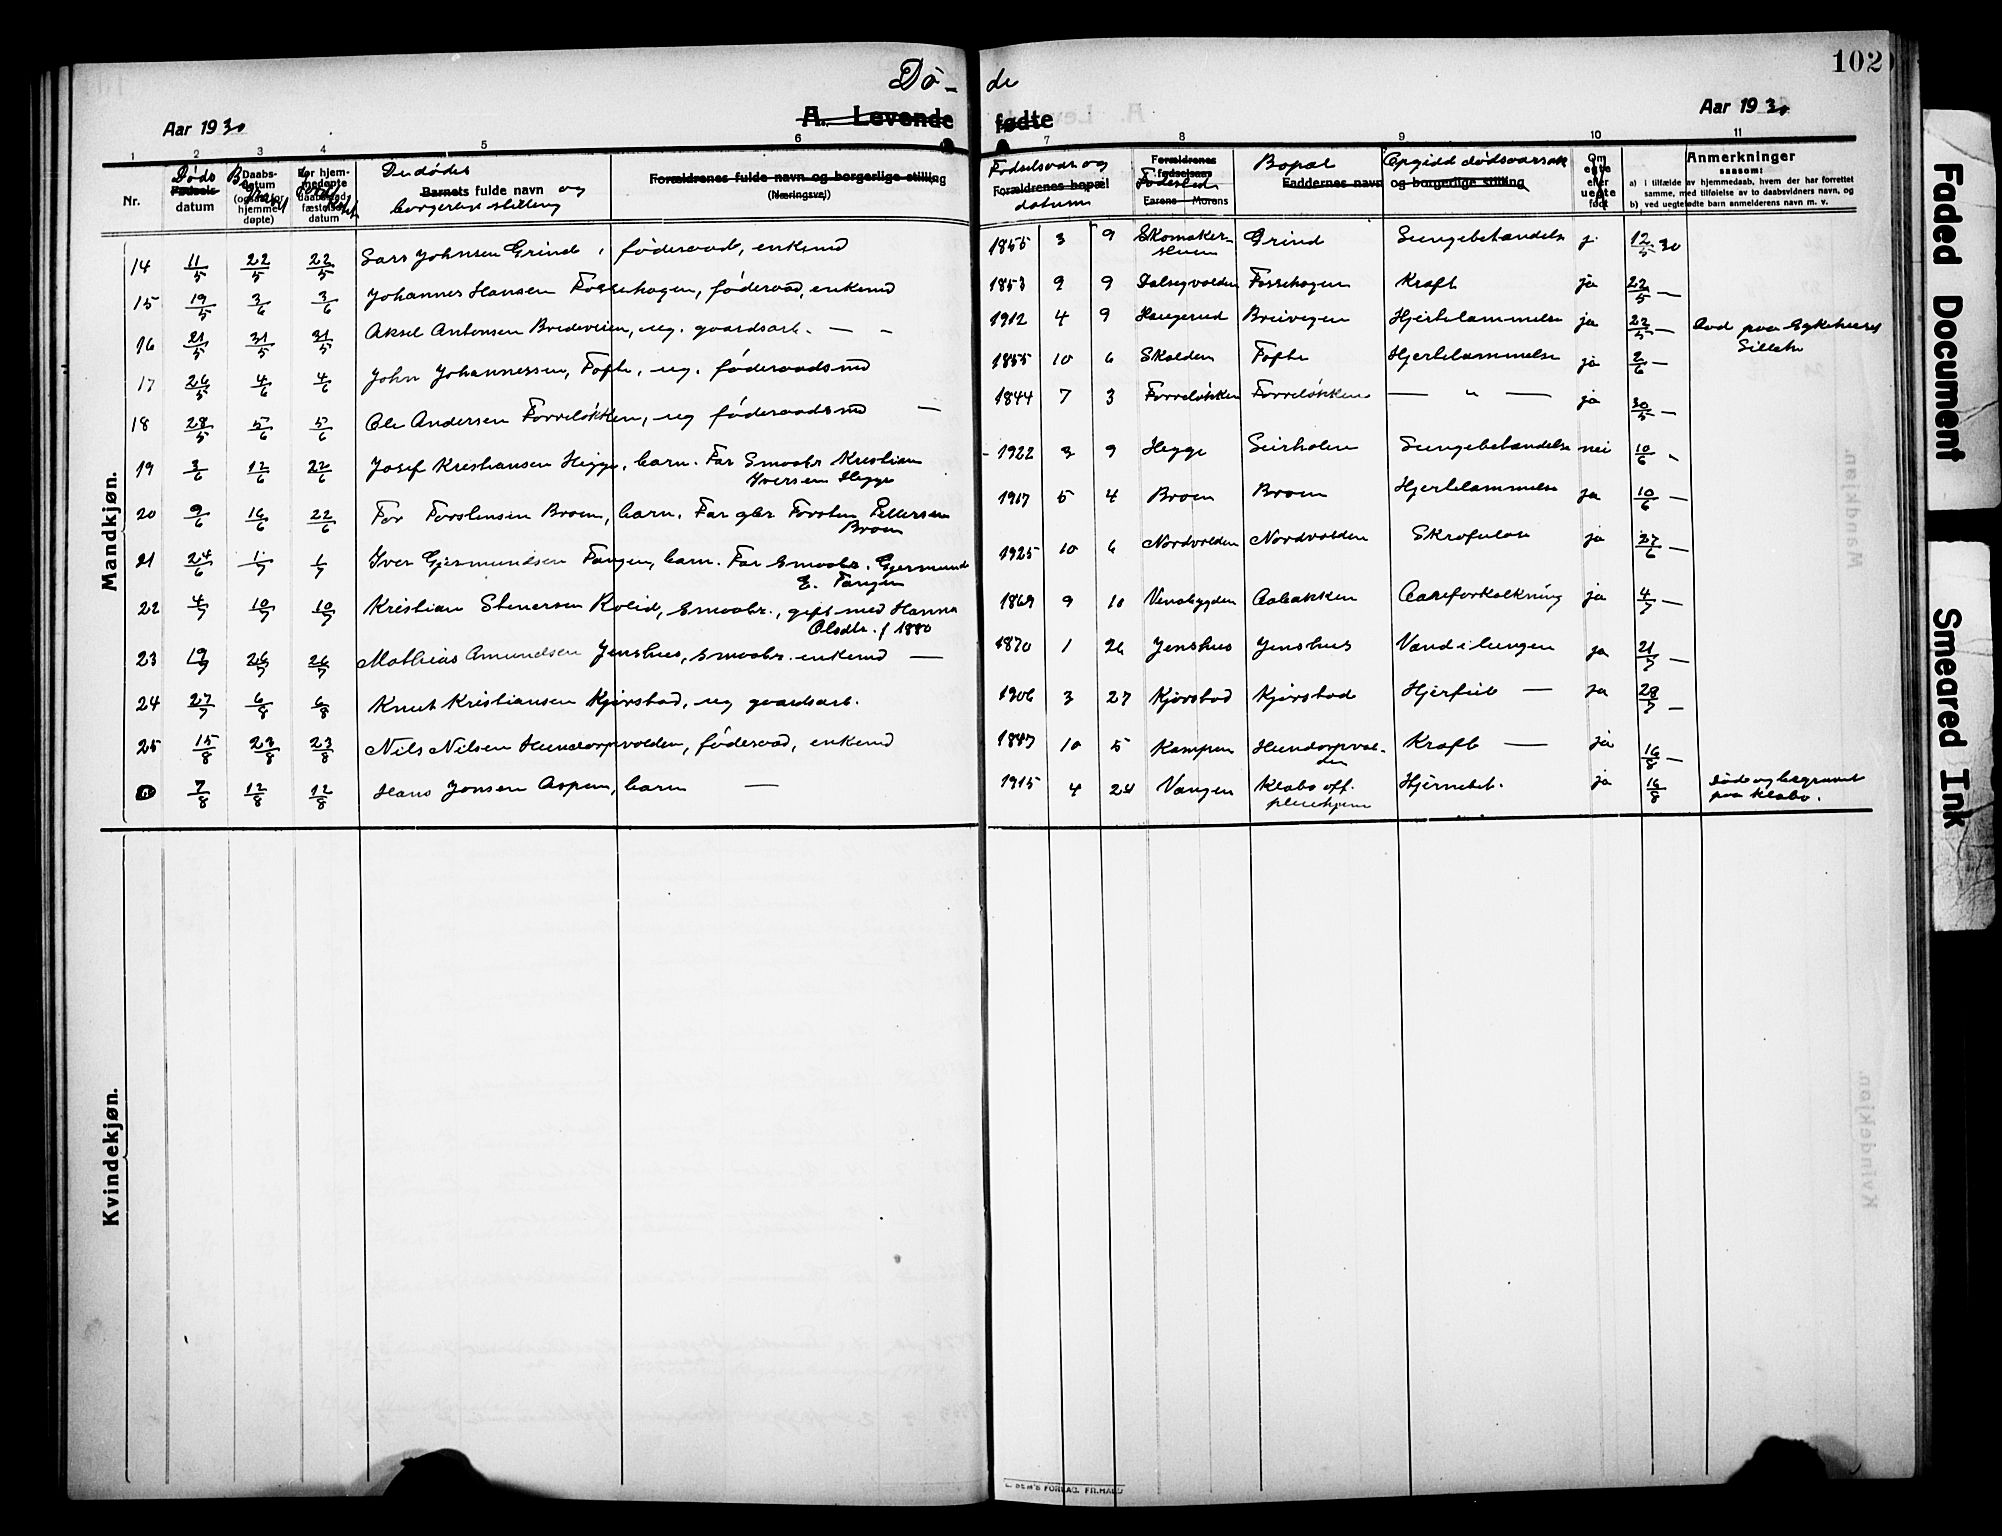 102
Dö- de
A. Levende fødte
Aar 1930
Aar 1930
1 2 3 4 5 6 7 8 9 10 11
Nr.
Døds
Fødsels-
datum
Daabs-
datum
(ogsaa for
hjemme-
døpte)
For hjem-
medøpte
daabens
fæstelses
datum
De dødes
Barnets fulde navn og
borgerlige stilling
Forældrenes fulde navn og borgerlige stilling
(Næringsvei)
Fødselsaar og
Forældrenes bopæl
datum
Forældrenes
fødselsaar
Fødested
Farens Morens
Bopæl Opgivd dødsaarsak
Faddernes navn og borgerlige stilling
Om
egte
eller
uegte
født
Anmerkninger
saasom:
a) i tilfælde av hjemmedaab, hvem der har forrettet
samme, med tilføielse av to daabsvidners navn, og
b) ved uegtefødte barn anmelderens navn m. v.
Mandkjøn.
14 11/5 22/5 22/5 Lars Johnsen Grind, föderaad, enkemd 1855 3 9 Skomaker- Grind Lungebetændelse j. 12/5 30
15 19/5 3/6 3/6 Johannes Hansen Fossehagen, föderaad, enkemd 1853 9 9 Dalsegvolden Fossehagen Kraft ja 22/5 —
16 21/5 31/5 31/5 Aksel Antonsen Bredeveien, ug. gaardsarb. — - 1912 4 9 Haugerud Breivegen Hjertelammelse ja 22/5 — Død paa Sykehuset
17 26/5 4/6 4/6 John Johannessen, Tofte, ug. föderaadsmd 1855 10 6 Skolden Tofte Hjertelammelse ja 2/6 —
18 28/5 5/6 5/6 Ole Andersen Forrelökken, ug föderaadsmd — 1844 7 3 Forrelökken Forrelökken — " — ja 30/5 —
19 3/6 12/6 22/6 Josef Kristiansen Hegge, barn. Far Smaabr Kristian
Iversen Hegge
1922 3 9 Hegge Leirholen Lungebetændelse nei 10/6 -
20 9/6 16/6 22/6 Tor Torstensen Broen, barn. Far gbr Torsten Pettersen
Broen
1917 5 4 Broen Broen Hjertelammelse ja 10/6 —
21 24/6 1/7 1/7 Iver Gjermundsen Tangen, barn. Far Smaabr. Gjermund
E. Tangen
1925 10 6 Nordvolden Nordvolden Skrofulose ja 27/6 —
22 4/7 10/7 10/7 Kristian Stenersen Kolid, smaabr., gift med Hanna
Olsdtr. f 1880
1869 9 10 Venabygden Aabakken Aareforkalkning ja 4/7 —
23 19/7 26/7 26/7 Mathias Amundsen Jenshus, smaabr. enkemd — 1870 1 26 Jenshus Jenshus Vand i lungen ja 21/7 —
24 27/7 6/8 6/8 Knut Kristiansen Kjörstad, ug gaardsarb. 1906 3 27 Kjörstad Kjörstad Hjerfeil — ja 28/7 —
25 15/8 23/8 23/8 Nils Nilsen Hundorpvolden, föderaad, enkemd 1847 10 5 Kampen Hundorpvol-
den
Kraft — ja 16/8 —
7/8 12/8 12/8 Hans Jonsen Aspen, barn — 1915 4 24 Vangen Klæbo off.
pleiehjem
Hjernebet. ja 16/8 Död og begravet
paa Klæbo.
Kvindekjøn.
FORLAG. FR.HALD
Faded Document
Smeared Ink